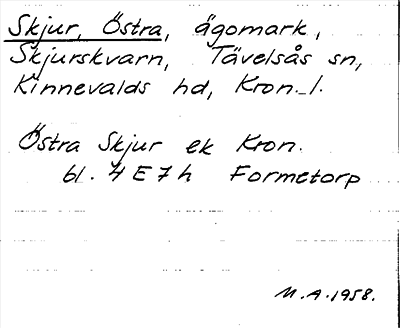 Skjur, Östra, ägomark,
Skjurskvarn, Tävelsås sn,
Kinnevalds hd, Kron. l.
Östra Skjur ek Kron.
bl. 4 E 7 h Formetorp
M.A. 1958.